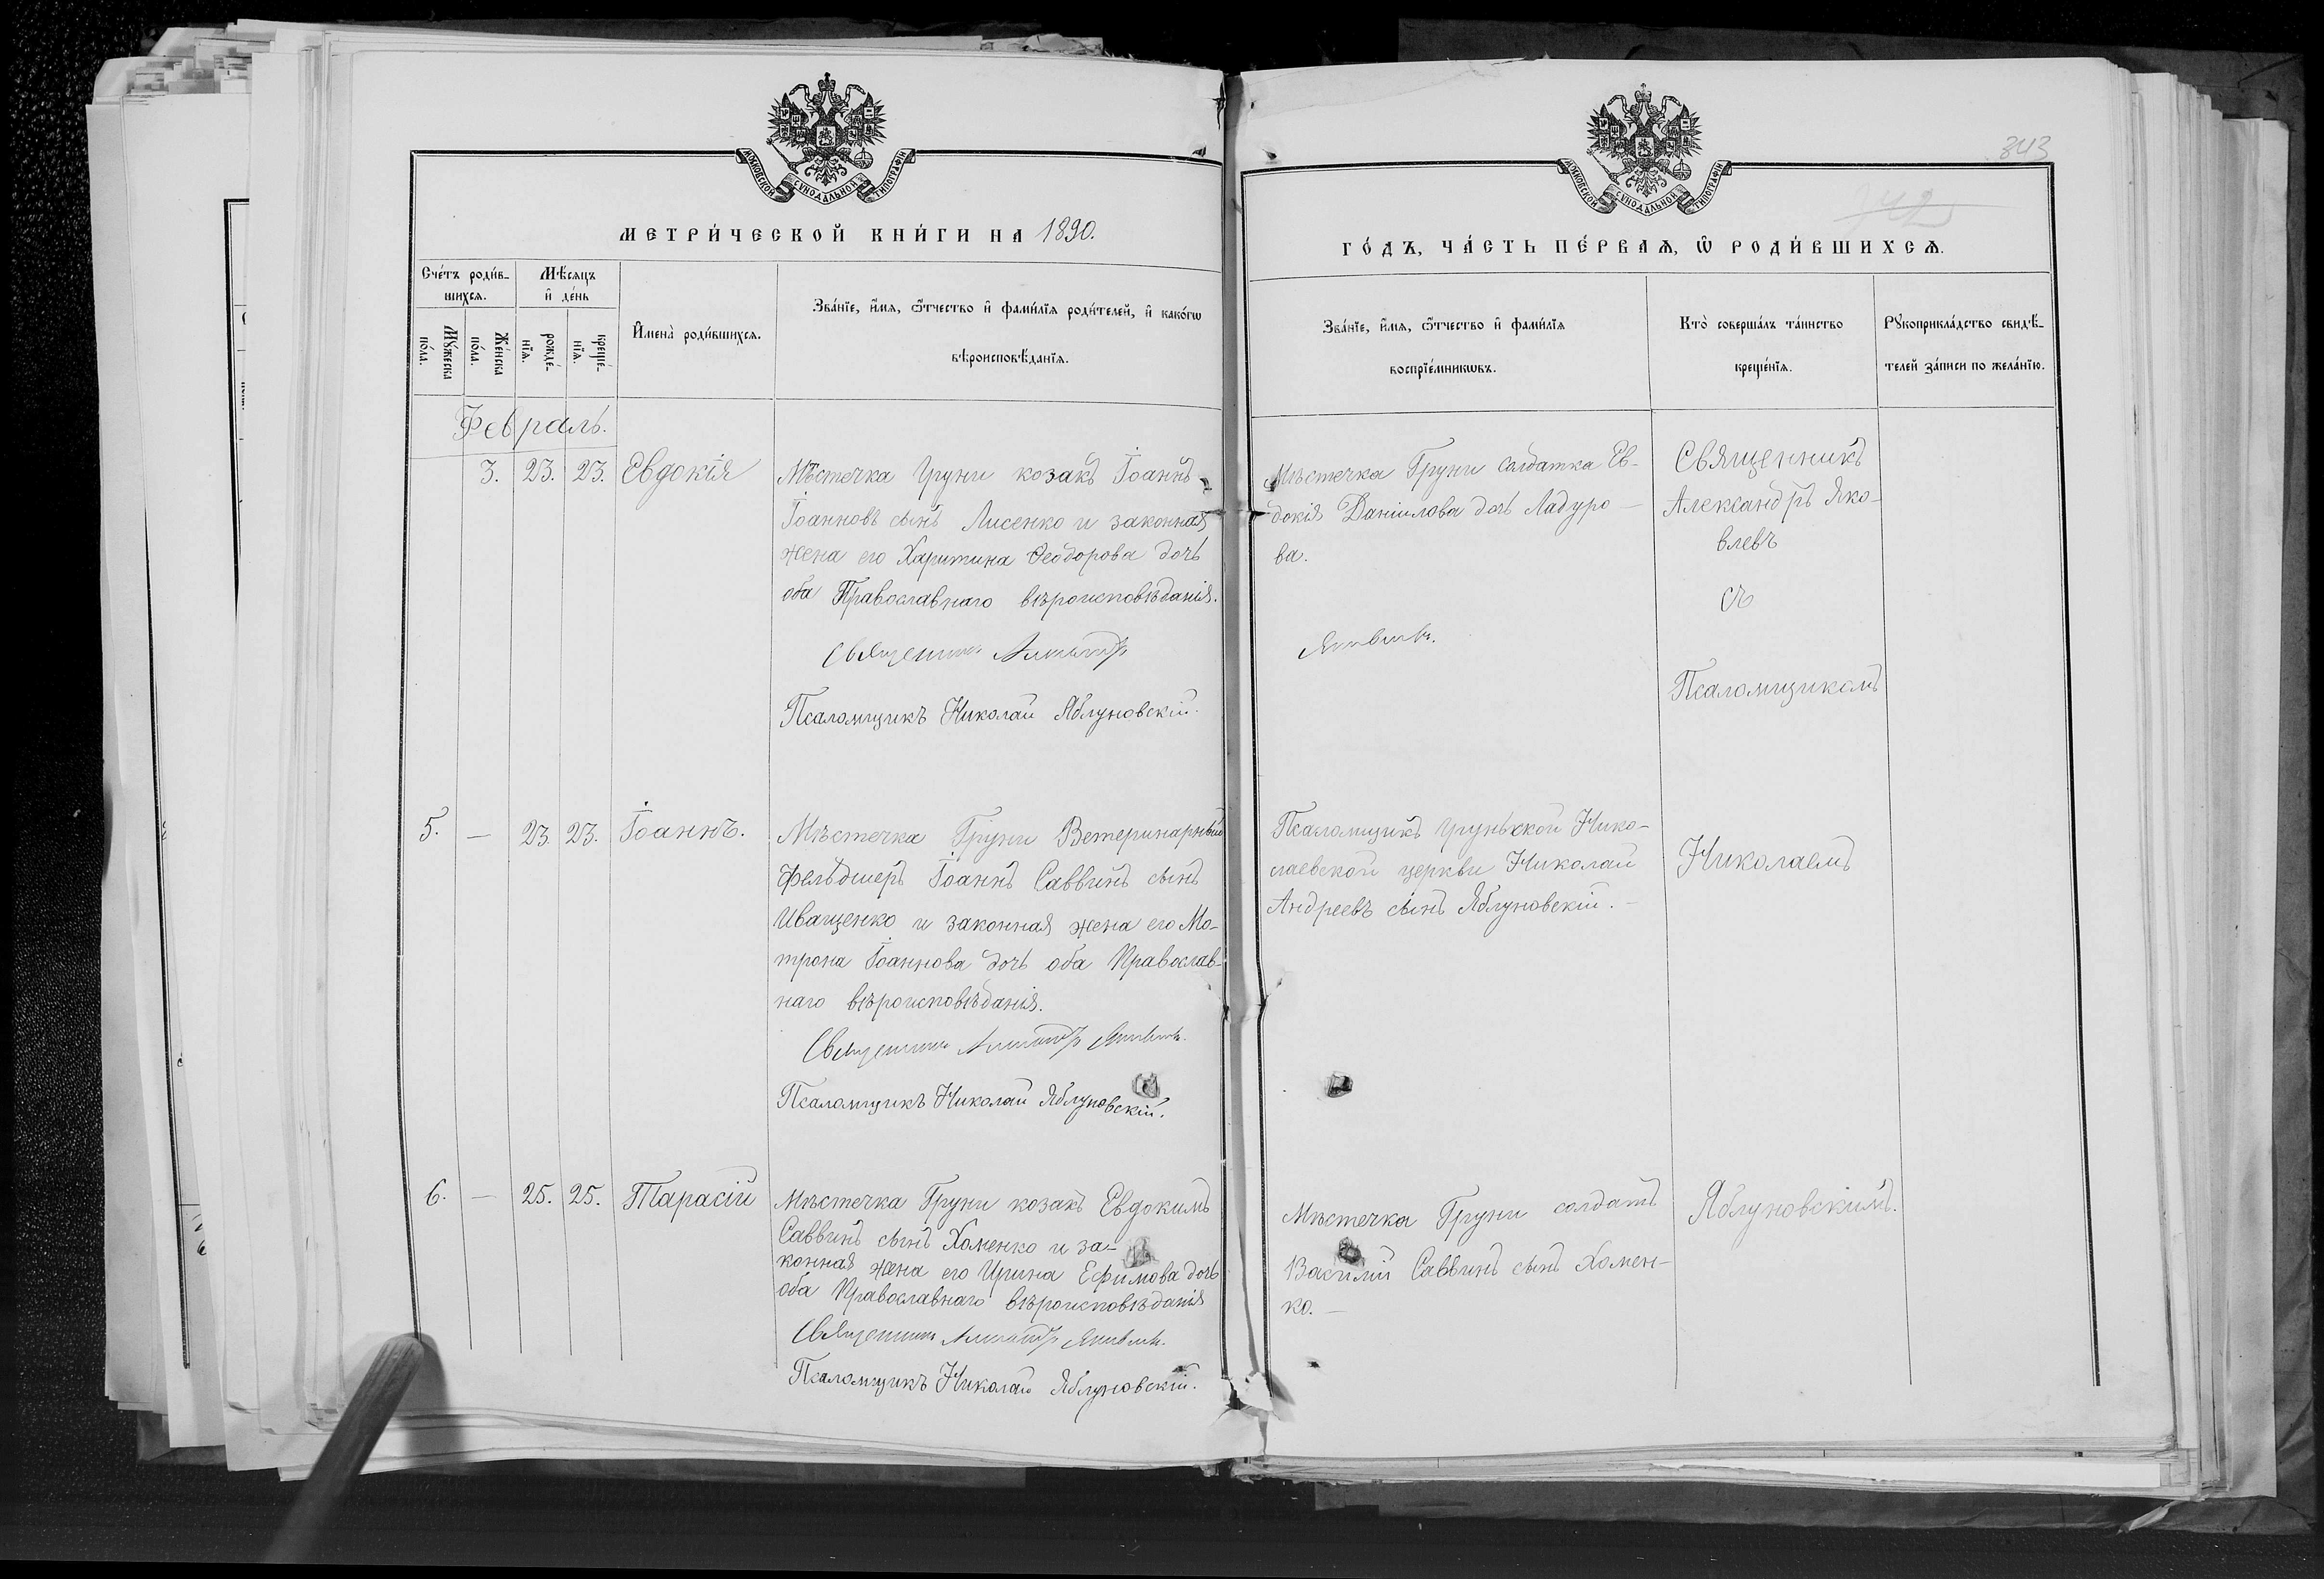 МОСКОВСКОЙ СѴНОДАЛЬНОЙ ТИПОГРАФІИ
МЕТРИ́ЧЕСКОЙ КНИ́ГИ НА 1890.
Сче́тъ роди́в-
шихсѧ.
Мѣ́сѧцъ
и҆ де́нь
Мꙋ́жеска
по́ла.
Же́нска
по́ла.
рожде́-
нїѧ.
креще́-
нїѧ.
И҆мена̀ роди́вшихсѧ.
Зва́нїе, и҆́мѧ, ѻ҆́тчество и҆ фами́лїѧ роди́телей, и҆ како́гѡ
вѣроисповѣ́данїѧ.
Февраль.
3. 23. 23. Евдокія
Мѣстечка Груни козакъ Іоаннъ
Іоанновъ сынъ Лисенко и законная
жена его Харитина Ѳеодорова дочь
оба Православнаго вѣроисповѣданія.
Священникъ Александръ
Псаломщикъ Николай Яблуновскій.
5. — 23. 23. Іоаннъ.
Мѣстечка Груни Ветеринарный
Фельдшеръ Іоаннъ Саввинъ сынъ
Иващенко и законная жена его Мо-
трона Іоаннова дочь оба Православ-
наго вѣроисповѣданія.
Священникъ Александръ Яковлевъ.
Псаломщикъ Николай Яблуновскій.
6. — 25. 25. Тарасій
Мѣстечка Груни козакъ Евдокимъ
Саввинъ сынъ Хоменко и за-
конная жена его Ирина Ефимова дочь
оба Православнаго вѣроисповѣданія
Священникъ Александръ Яковлевъ.
Псаломщикъ Николай Яблуновскій.
343
МОСКОВСКОЙ СѴНОДАЛЬНОЙ ТИПОГРАФІИ
ГО́ДЪ, ЧА́СТЬ ПЕ́РВАѦ, Ѽ РОДИ́ВШИХСѦ.
Зва́нїе, и҆́мѧ, ѻ҆́тчество и҆ фами́лїѧ
воспрїе́мникѡвъ.
Кто̀ соверша́лъ та́инство
креще́нїѧ.
Рꙋкоприкла́дство свидѣ́-
телей за́писи по жела́нїю.
Мѣстечка Груни солдатка Ев-
докія Даніилова дочь Ладуро-
ва.
Яковлевъ.
Священникъ
Александръ Яко-
влевъ
съ
Псаломщикомъ
Псаломщикъ Груньской Нико-
лаевской церкви Николай
Андреевъ сынъ Яблуновскій. —
Николаемъ
Мѣстечка Груни солдатъ
Василій Саввинъ сынъ Хомен-
ко. —
Яблуновскимъ.